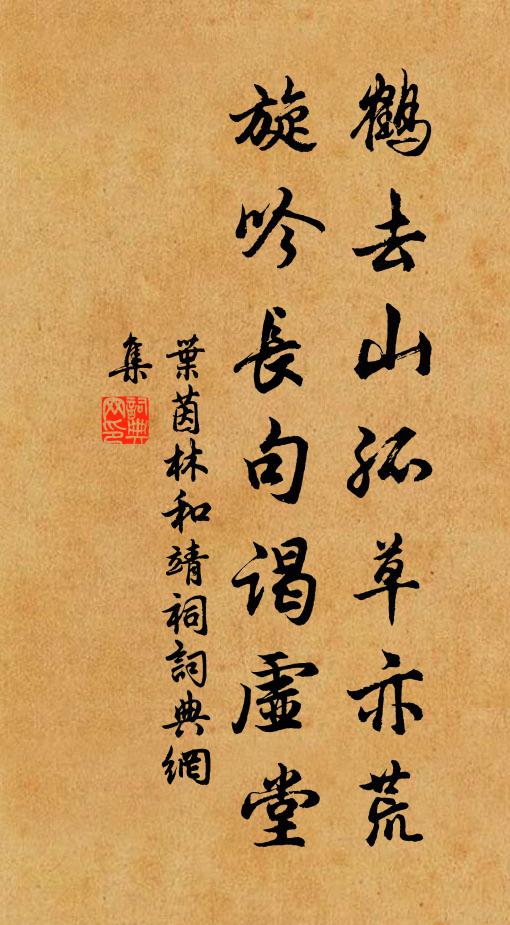 鶴去山孤草亦荒
旋吟長句謁虛堂
葉茵林和靖祠詞典網
集
詞典
網印